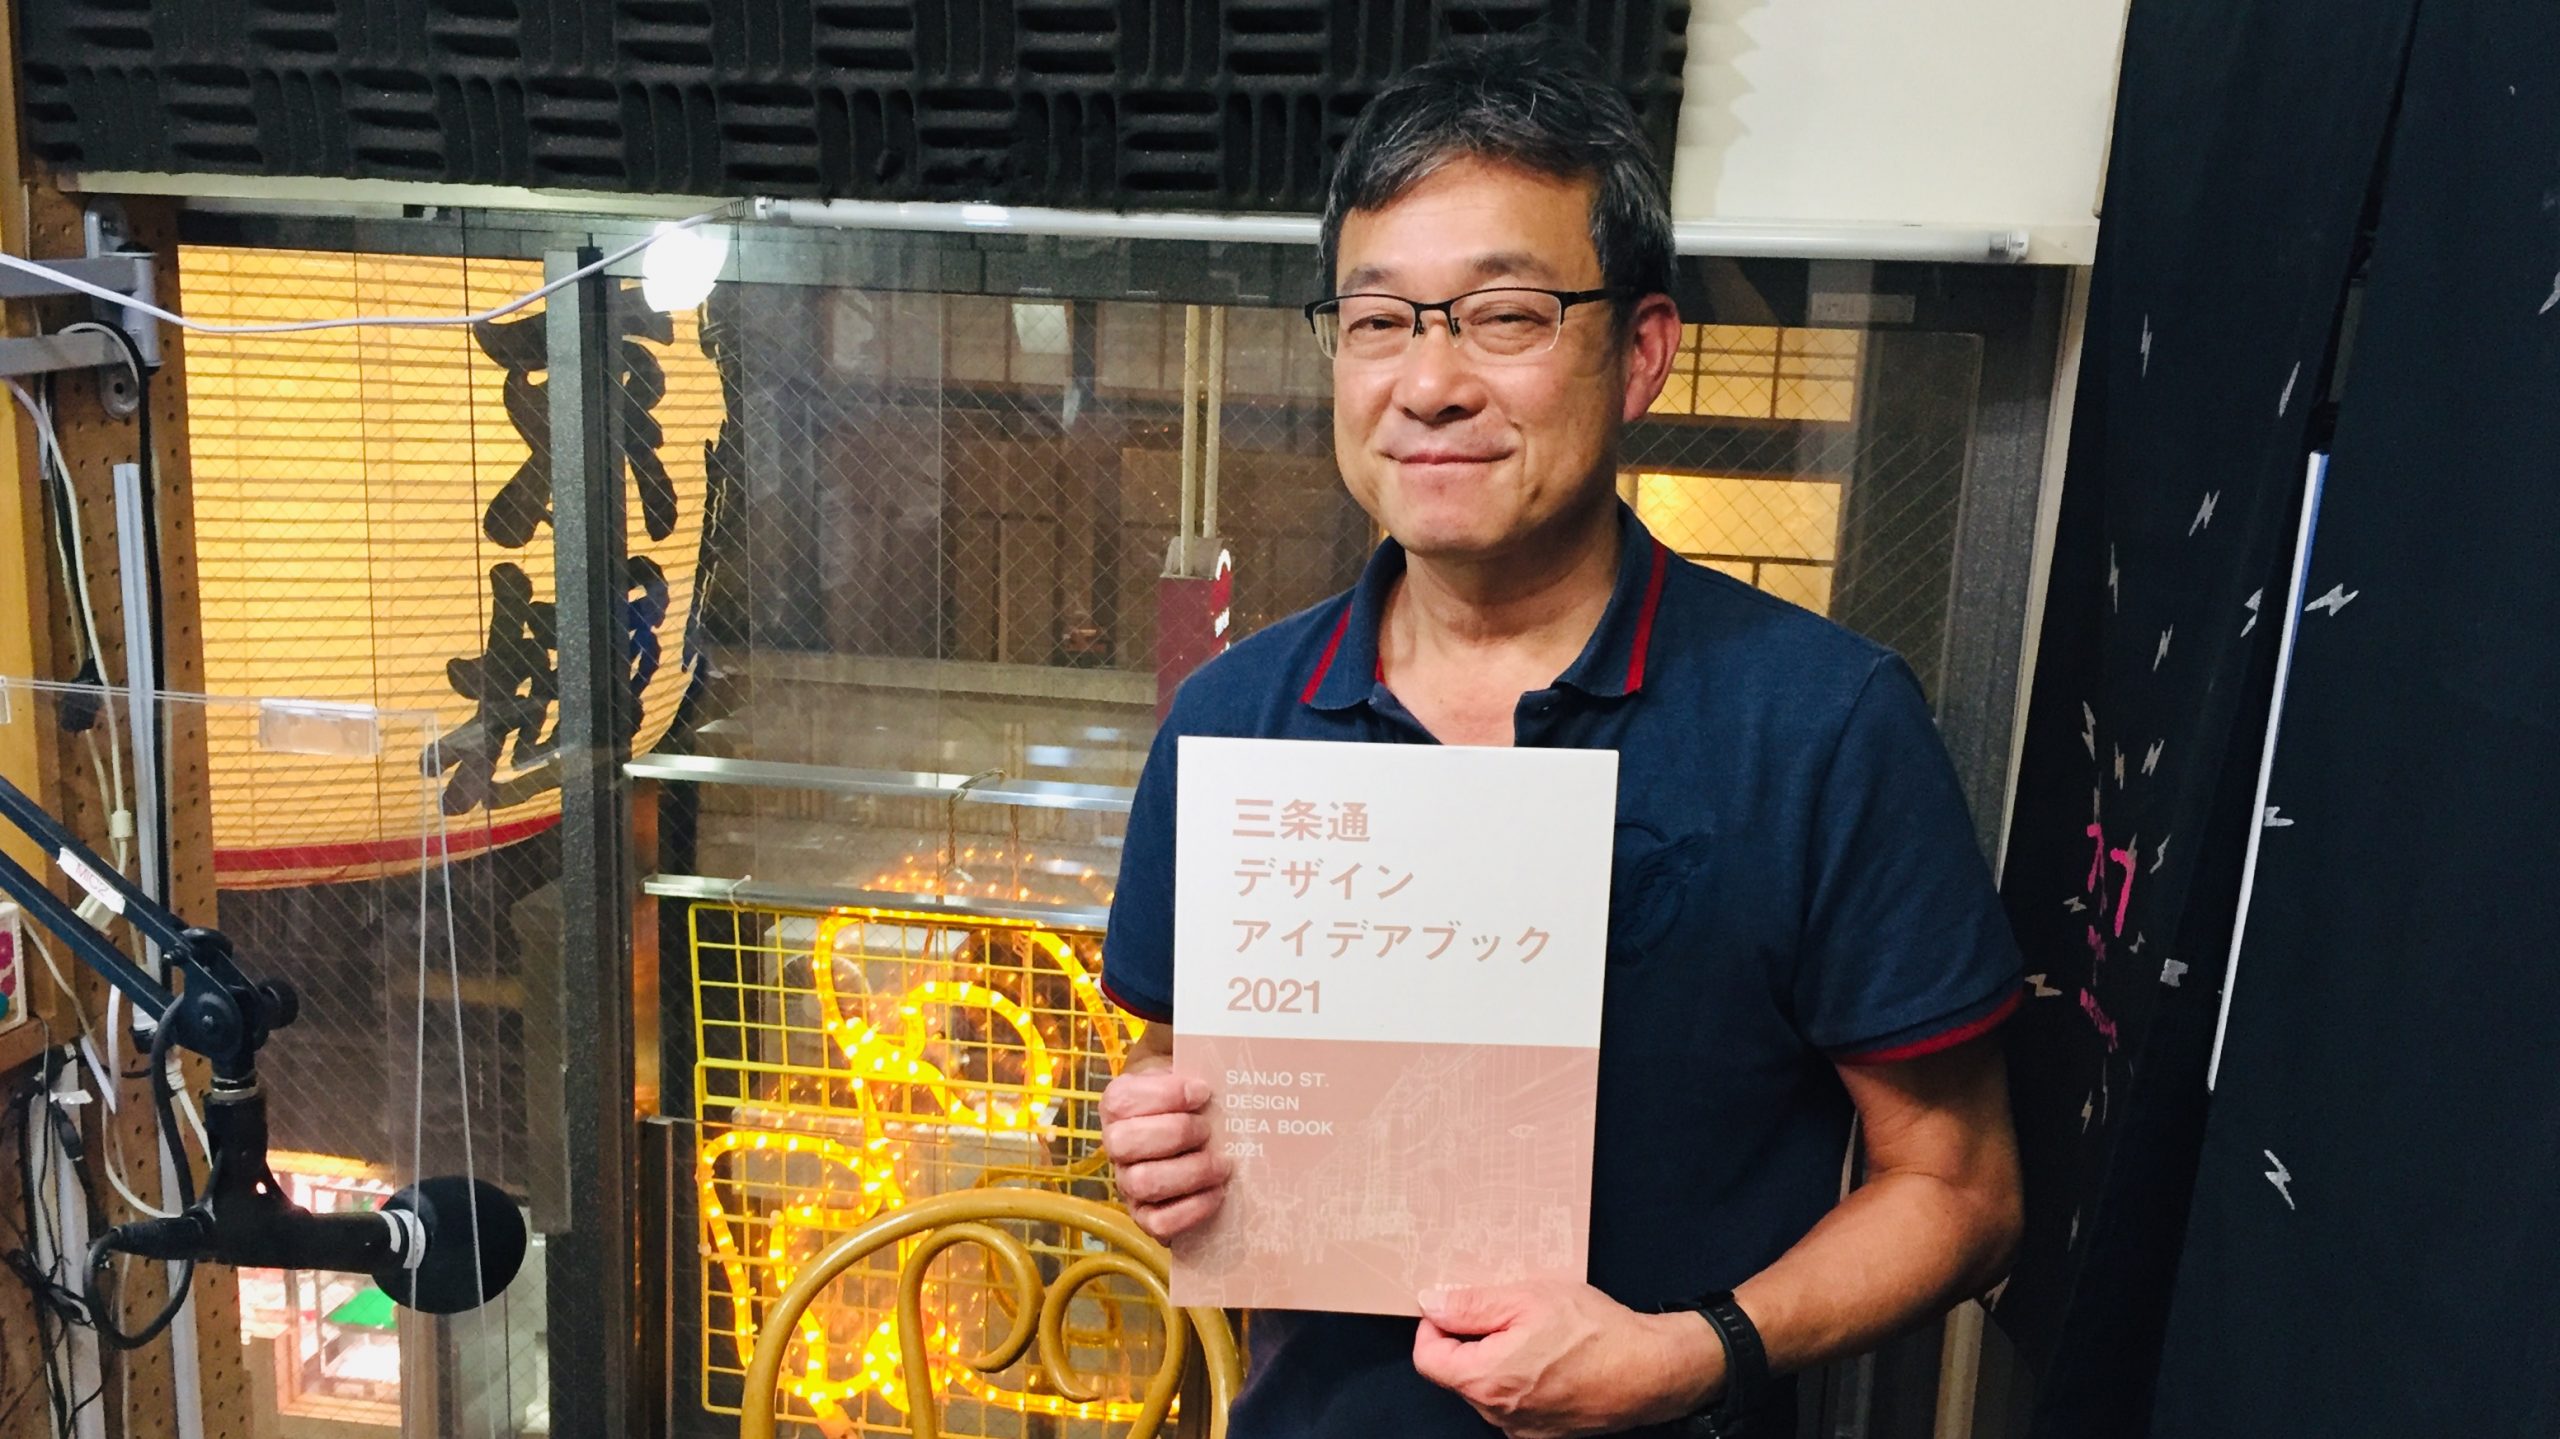 三条通
デザイン
アイデアブック
2021
SANJO ST.
DESIGN
IDEA BOOK
2021
MC2